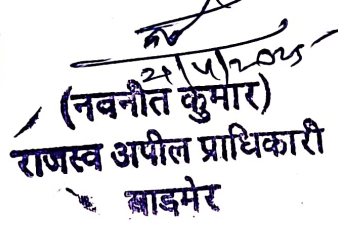 21/4/2025
(नवनीत कुमार)
राजस्व अपील प्राधिकारी
बाडमेर